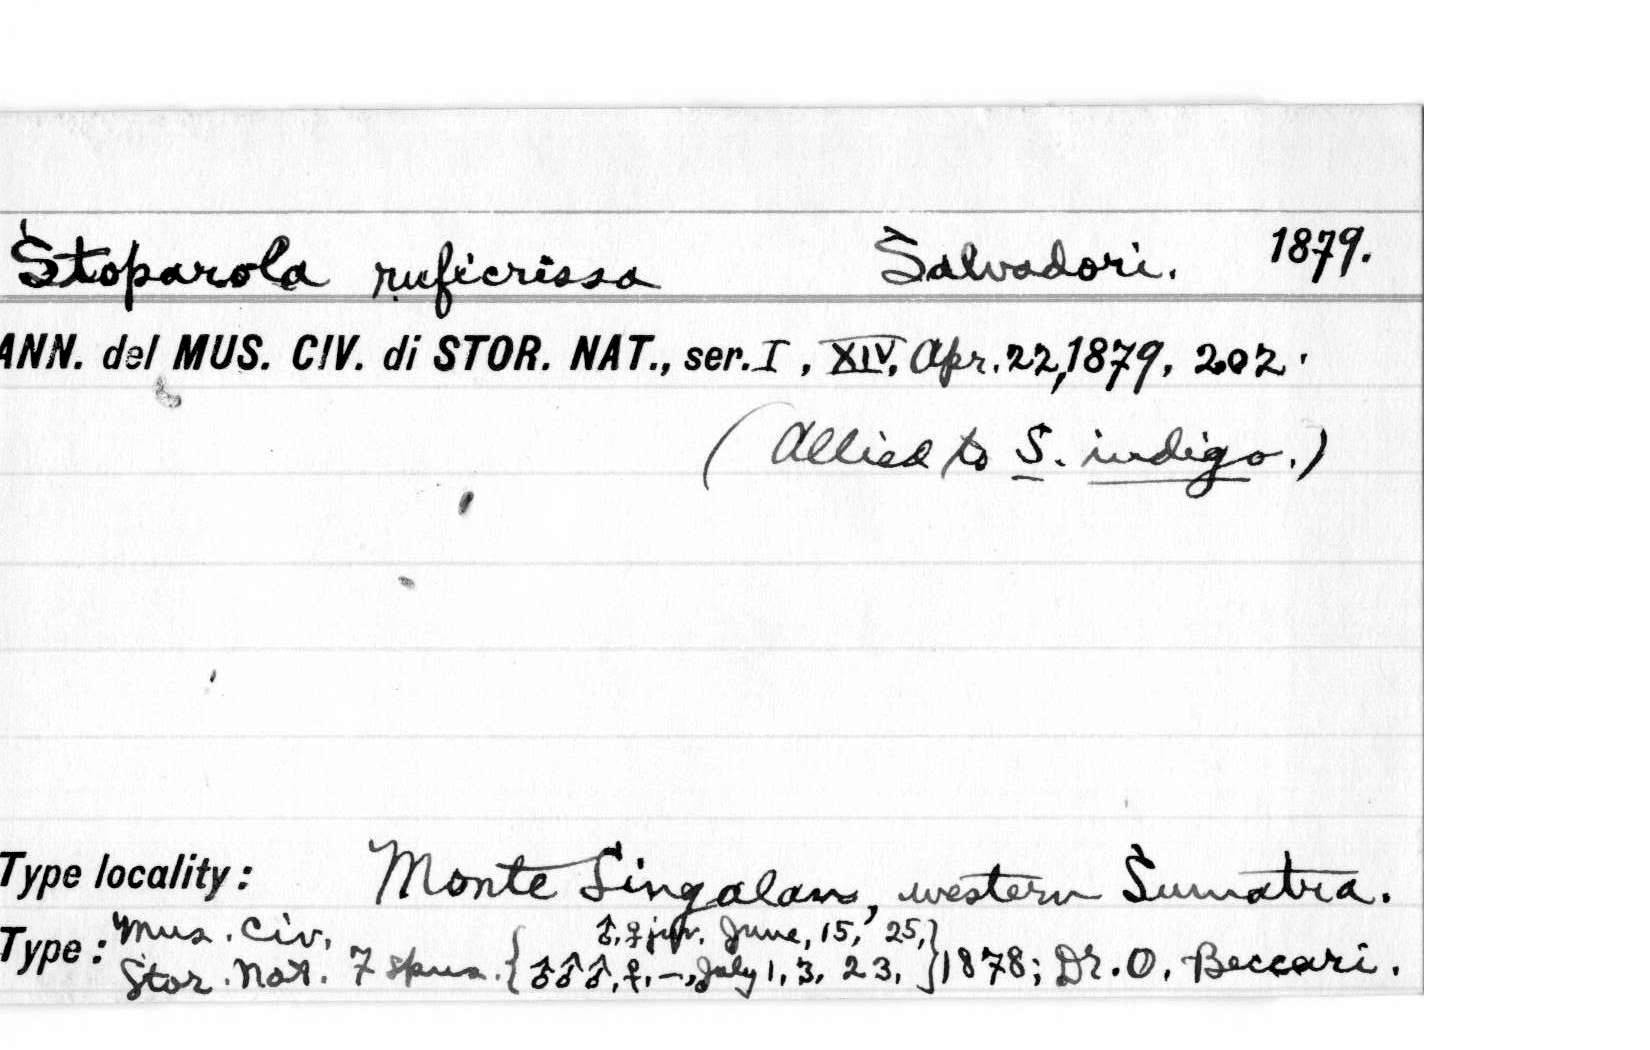 Stoparola ruficrissa Salvadori. 1879.
ANN. del MUS. CIV. di STOR. NAT., ser. I, XIV, Apr. 22, 1879, 202.
(Allied to S. indigo.)
Type locality: Monte Singalan, western Sumatra.
Type: Mus. Civ. Stor. Nat. 7 spms. { ♂, ♀ juv. June, 15, 25,
♂♂♂, ♀, –, July 1, 3, 23, } 1878; Dr. O. Beccari.